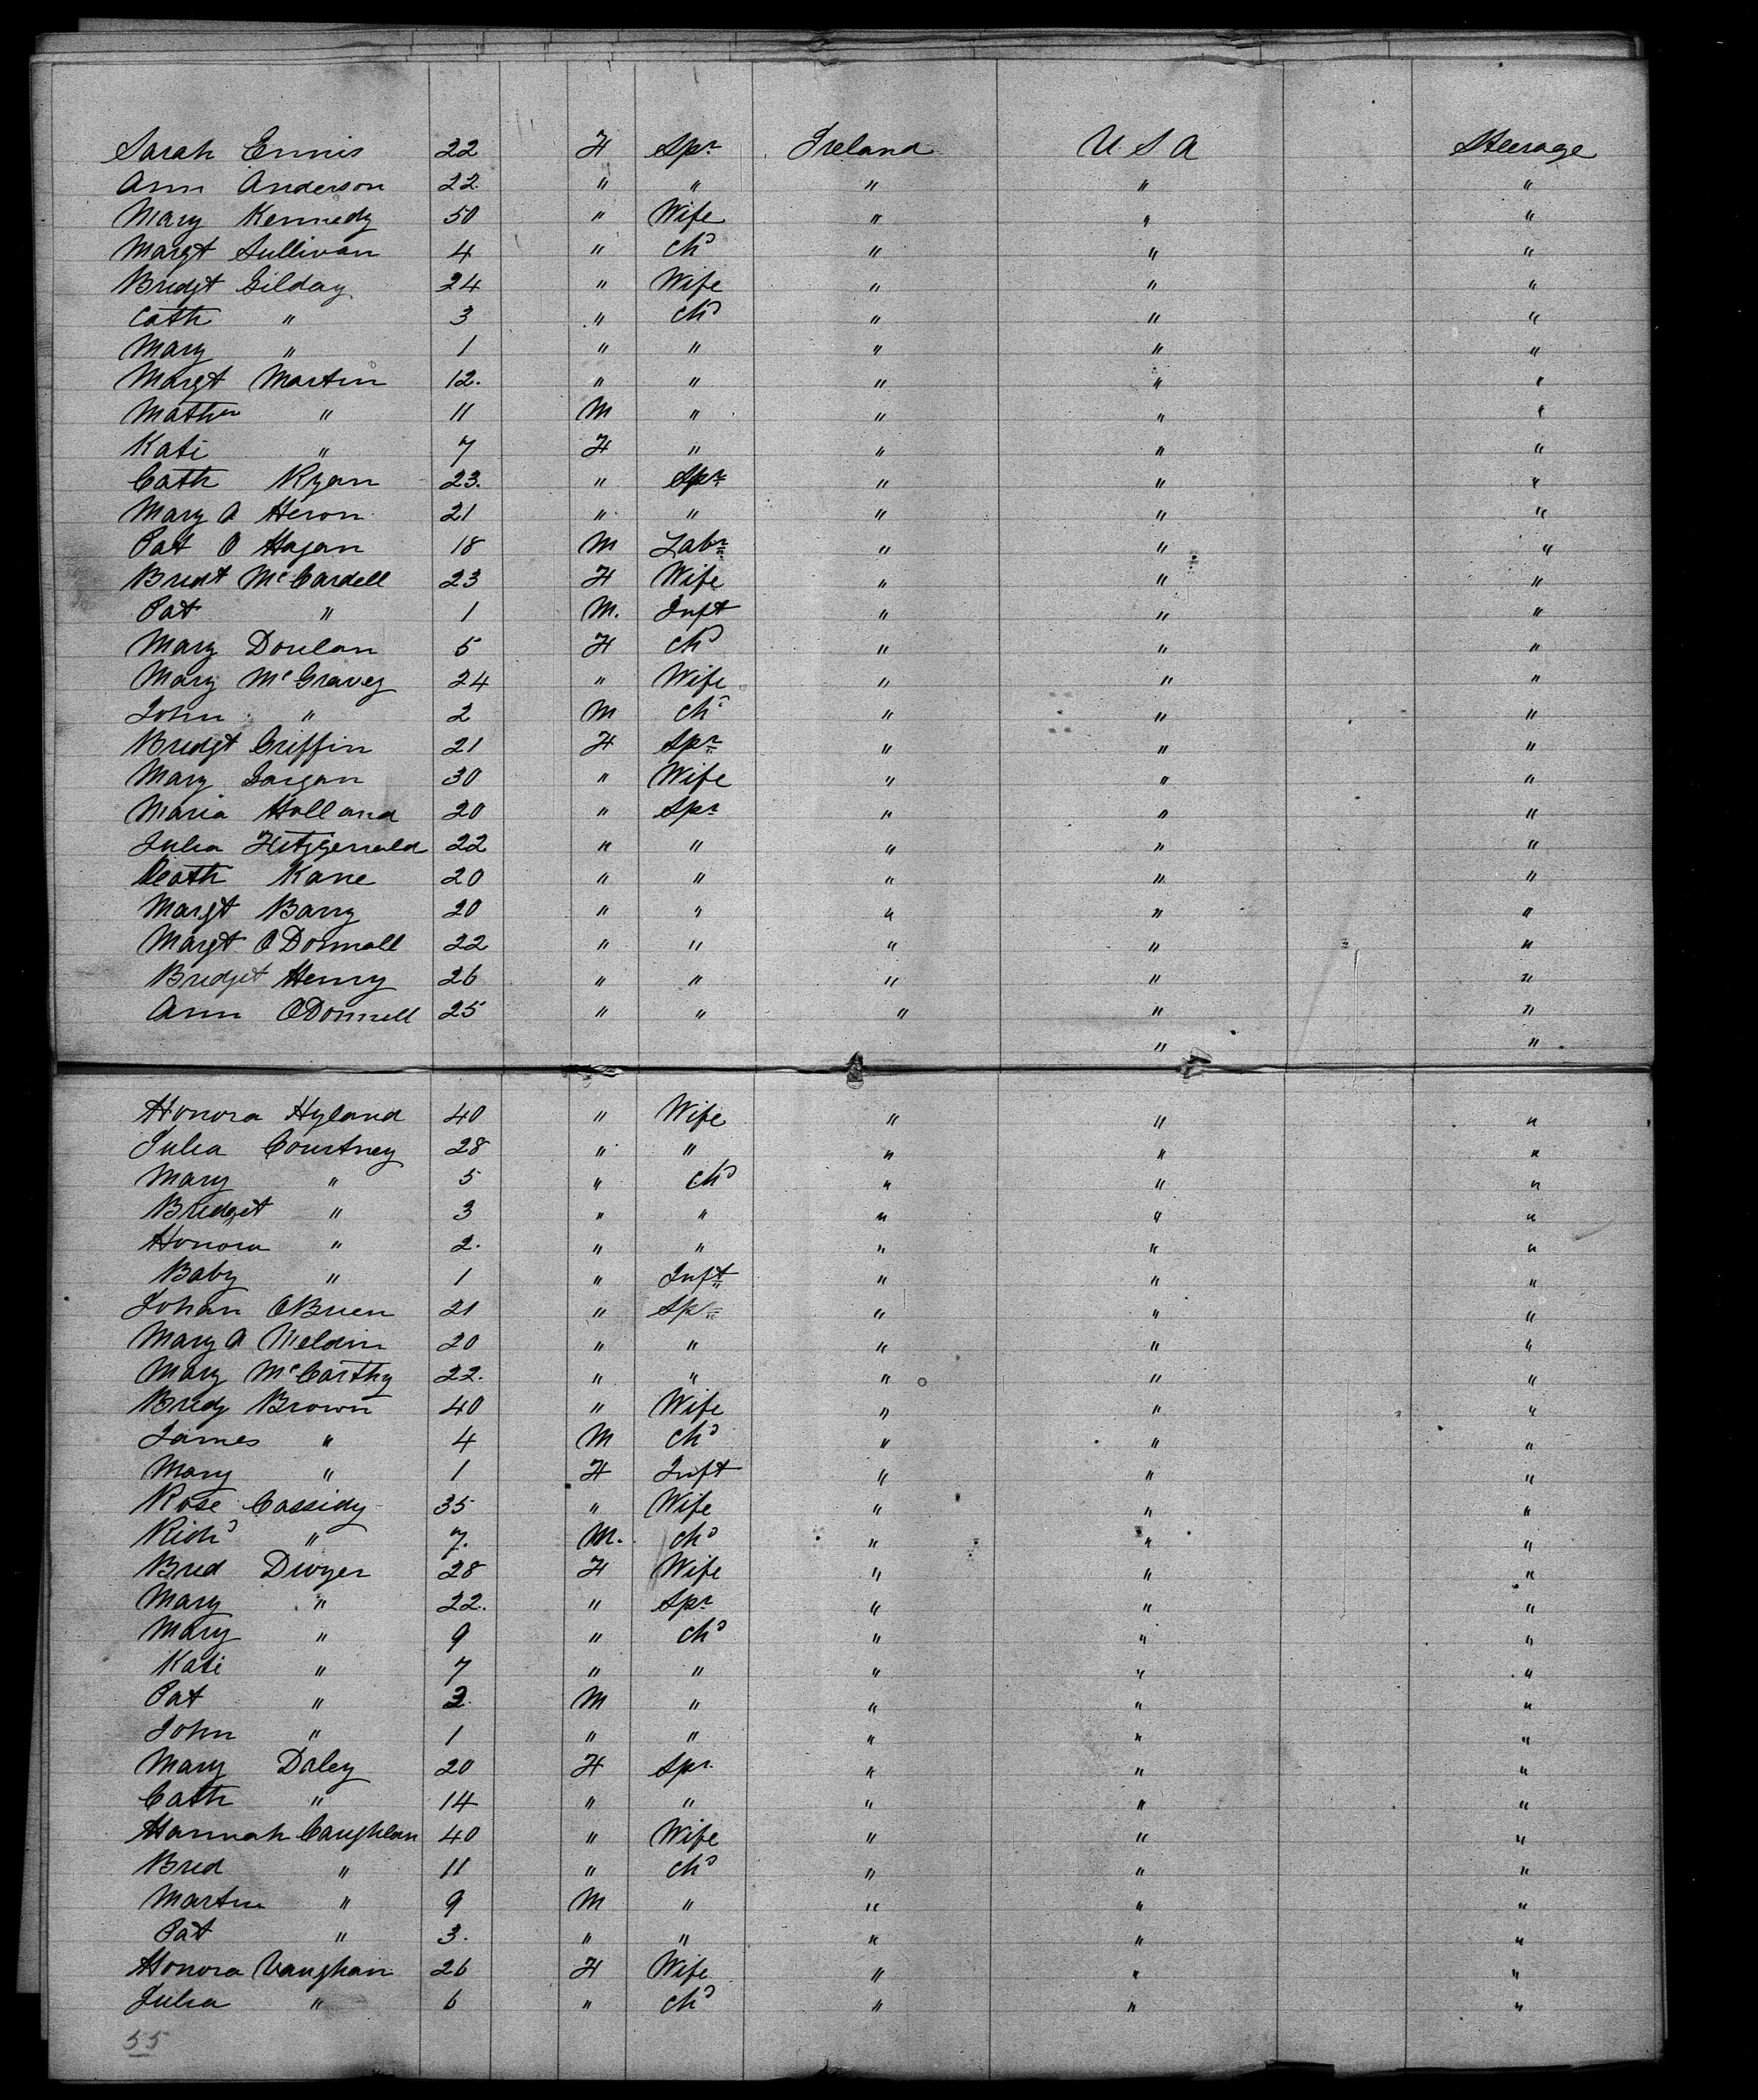 Sarah Ennis 22 F Spr Ireland U S A Steerage
Ann Anderson 22 " " " " "
Mary Kennedy 50 " Wife " " "
Margt Sullivan 4 " Chd " " "
Bridgt Gilday 24 " Wife " " "
Cath " 3 " Chd " " "
Mary " 1 " " " " "
Margt Martin 12. " " " " "
Mathw " 11 M " " " "
Kati " 7 F " " " "
Cath Ryan 23. " Spr " " "
Mary A Heron 21 " " " " "
Pat O Hagan 18 M Labr " " "
Bridt McCardell 23 F Wife " " "
Pat " 1 M. Inft " " "
Mary Donlan 5 F Chd " " "
Mary McGravey 24 " Wife " " "
John " 2 M Chd " " "
Bridgt Griffin 21 F Spr " " "
Mary Gargan 30 " Wife " " "
Maria Holland 20 " Spr " " "
Julia Fitzgerrald 22 " " " " "
Cath Kane 20 " " " " "
Margt Barry 20 " " " " "
Margt O Donnall 22 " " " " "
Bridget Henry 26 " " " " "
Ann ODonnell 25 " " " " "
" "
Honora Hyland 40 " Wife " " "
Julia Courtney 28 " " " " "
Mary " 5 " Chd " " "
Bridget " 3 " " " " "
Honora " 2. " " " " "
Baby " 1 " Inft " " "
Johan OBrien 21 " Spr " " "
Mary A Weldin 20 " " " " "
Mary McCarthy 22. " " " " "
Bridg Brown 40 " Wife " " "
James " 4 M Chd " " "
Mary " 1 F Inft " " "
Rose Cassidy 35 " Wife " " "
Richd " 7. M. Chd " " "
Brid Dwyer 28 F Wife " " "
Mary " 22. " Spr " " "
Mary " 9 " Chd " " "
Kati " 7 " " " " "
Pat " 3 M " " " "
John " 1 " " " " "
Mary Daley 20 F Spr " " "
Cath " 14 " " " " "
Hannah Caughlan 40 " Wife " " "
Brid " 11 " Chd " " "
Martin " 9 M " " " "
Pat " 3. " " " " "
Honora Vaughan 26 F Wife " " "
Julia " 6 " Chd " " "
55